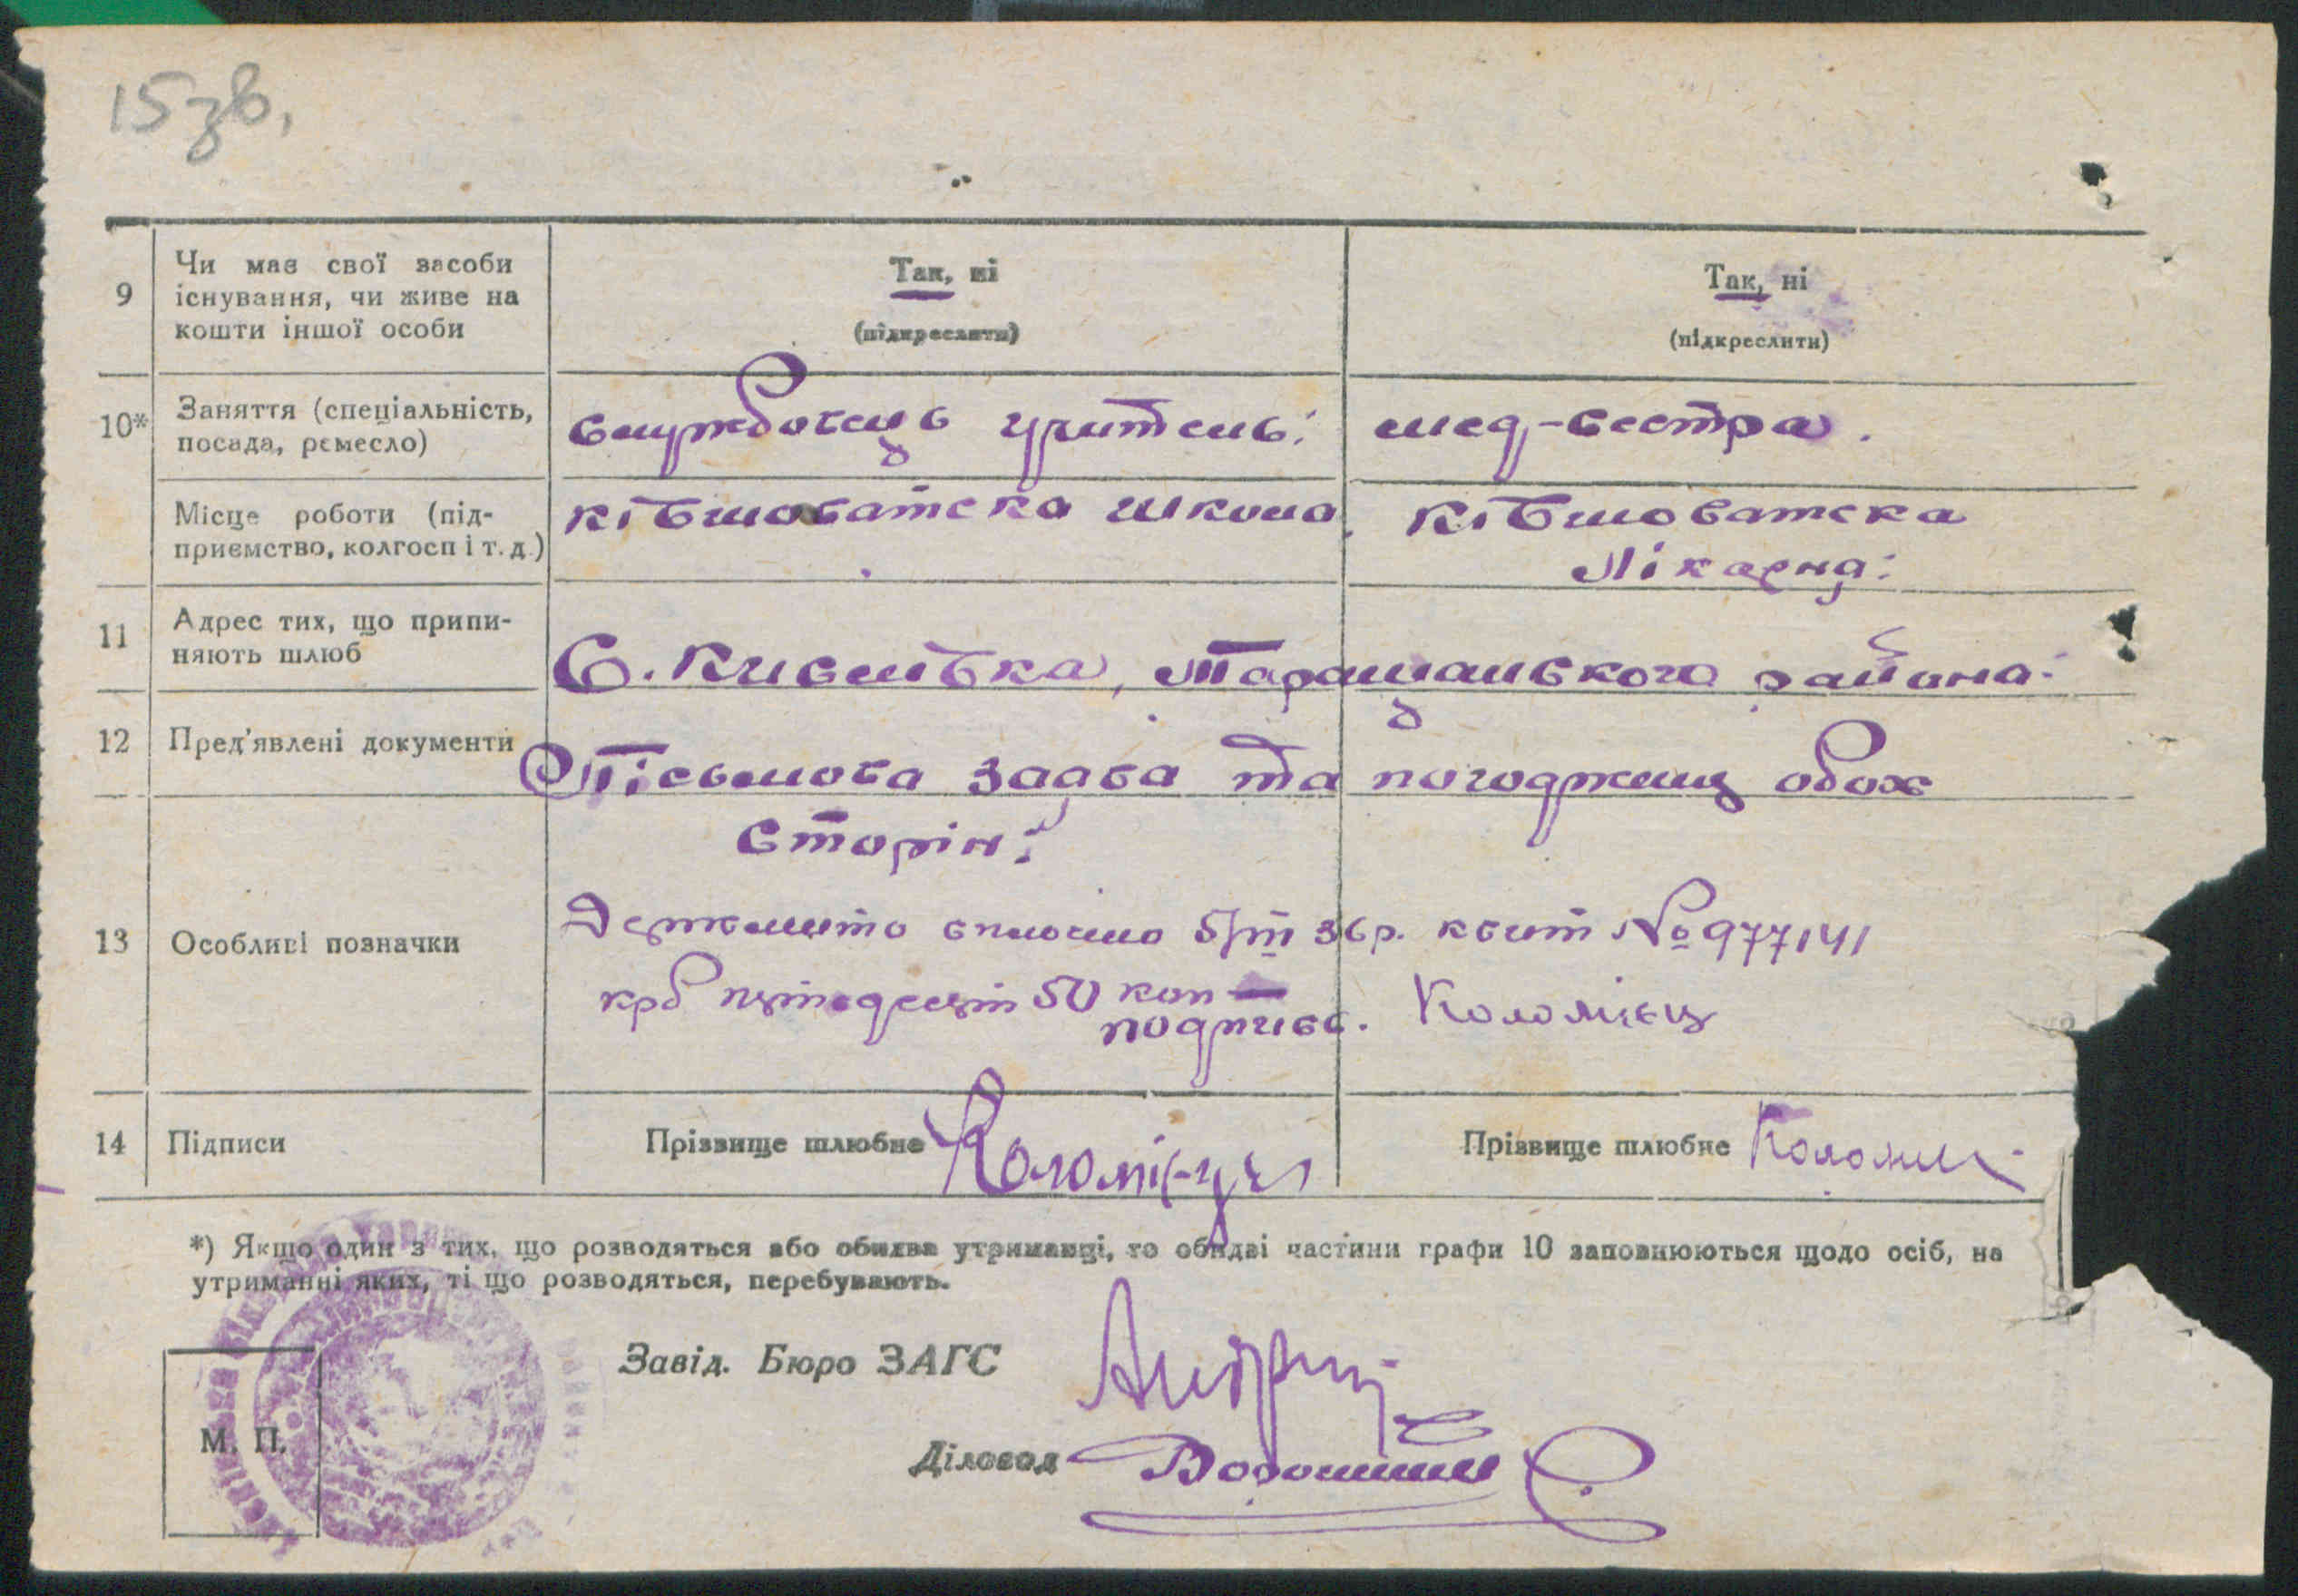 15 зв.
9 Чи має свої засоби існування, чи живе на кошти іншої особи
Так, ні
(підкреслити)
Так, ні
(підкреслити)
10* Заняття (спеціальність, посада, ремесло)
службовець учитель.
мед-сестра.
Місце роботи (підприємство, колгосп і т. д.)
ківшоватська школа
ківшоватска
Лікарня.
11 Адрес тих, що припиняють шлюб
С. Кислівка, Таращанського району.
12 Пред'явлені документи
Письмова заява та погодження обох
сторін.
13 Особливі позначки
Держмито сплачно 5/III 36 р. квит № 977141
крб пятдесят 50 коп
подпись. Коломієц
14 Підписи
Прізвище шлюбне Коломієць
Прізвище шлюбне
*) Якщо один з тих, що розводяться або обидва утриманці, то обидві частини графи 10 заповнюються щодо осіб, на
утриманні яких, ті що розводяться, перебувають.
М. П.
Завід. Бюро ЗАГС
Діловод